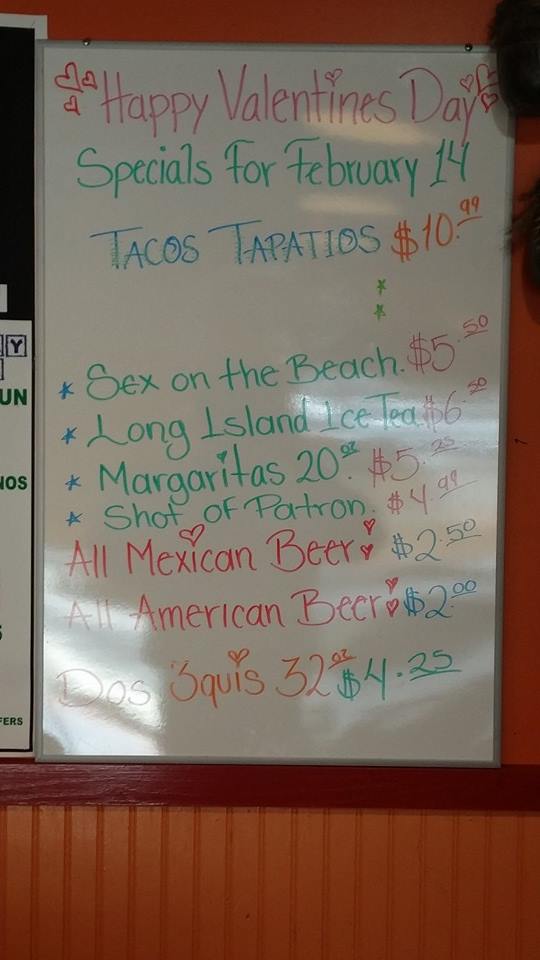 Happy Valentines Day
Specials for February 14
TACOS TAPATIOS $10.99
* Sex on the Beach. $5.50
* Long Island Ice Tea $6.50
* Margaritas 20oz $5.25
* Shot of Patron. $4.99
All Mexican Beer: $2.50
All American Beer: $2.00
Dos 3quis 32oz $4.25
Y
UN
NOS
FERS